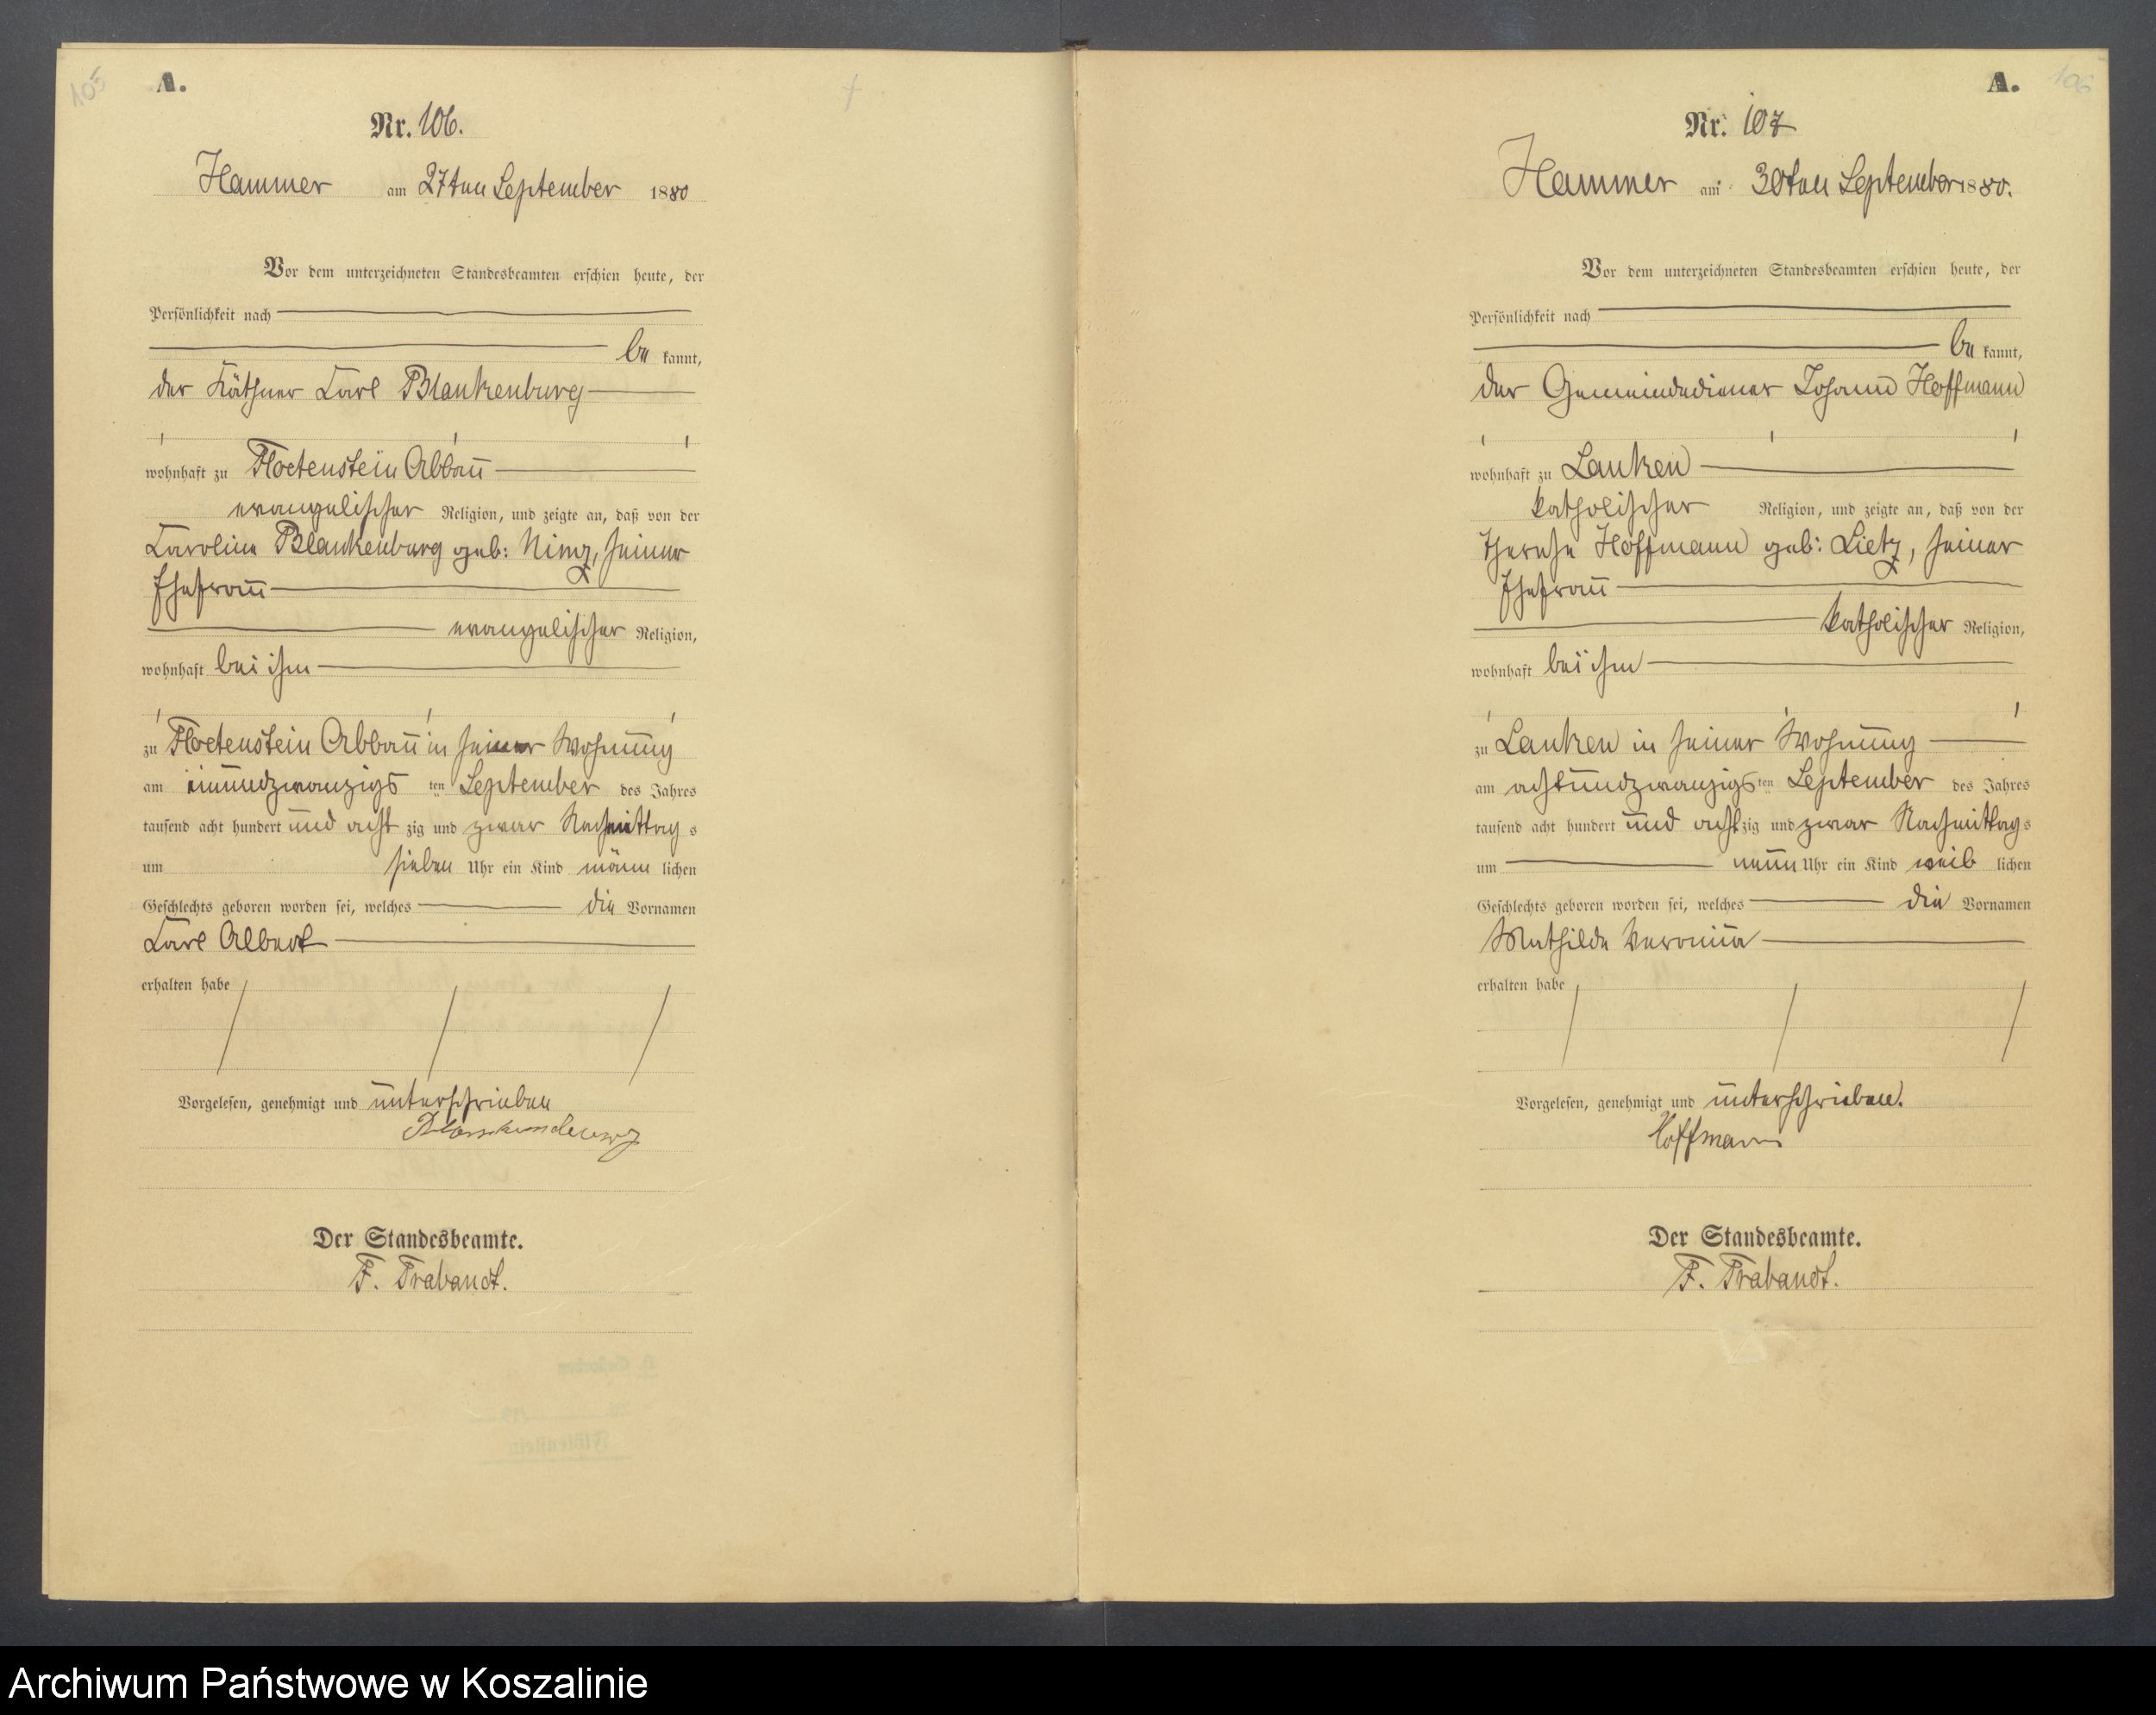 105
A.
Nr. 106.
Hammer am 27ten September 1880
Vor dem unterzeichneten Standesbeamten erschien heute, der
Persönlichkeit nach
be kannt,
der Käthner Carl Blankenburg
wohnhaft zu Floetenstein Abbau
evangelischer Religion, und zeigte an, daß von der
Caroline Blankenburg geb: Nimz, seiner
Ehefrau
evangelischer Religion,
wohnhaft bei ihm
zu Floetenstein Abbau in seiner Wohnung
am einundzwanzigs ten September des Jahres
tausend acht hundert und acht zig und zwar Nachmittag s
um sieben Uhr ein Kind männ lichen
Geschlechts geboren worden sei, welches die Vornamen
Carl Albert
erhalten habe
Vorgelesen, genehmigt und unterschrieben
Blankenburg
Der Standesbeamte.
F. Trabandt.
A.
106
Nr. 107
Hammer am 30ten September 1880.
Vor dem unterzeichneten Standesbeamten erschien heute, der
Persönlichkeit nach
be kannt,
der Gemeindediener Johann Hoffmann
wohnhaft zu Lanken
katholischer Religion, und zeigte an, daß von der
Therese Hoffmann geb: Lietz, seiner
Ehefrau
katholischer Religion,
wohnhaft bei ihm
zu Lanken in seiner Wohnung
am achtundzwanzigs ten September des Jahres
tausend acht hundert und acht zig und zwar Nachmittag s
um neun Uhr ein Kind weib lichen
Geschlechts geboren worden sei, welches die Vornamen
Mathilde Veronica
erhalten habe
Vorgelesen, genehmigt und unterschrieben.
Hoffmann
Der Standesbeamte.
F. Trabandt.
Archiwum Państwowe w Koszalinie